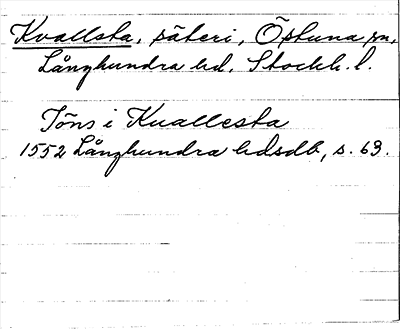 Kvallsta, säteri, Östuna sn,
Långhundra hd. Stockh. l.
Jöns i Kuallesta
1552 Långhundra hdsdb, s. 63.